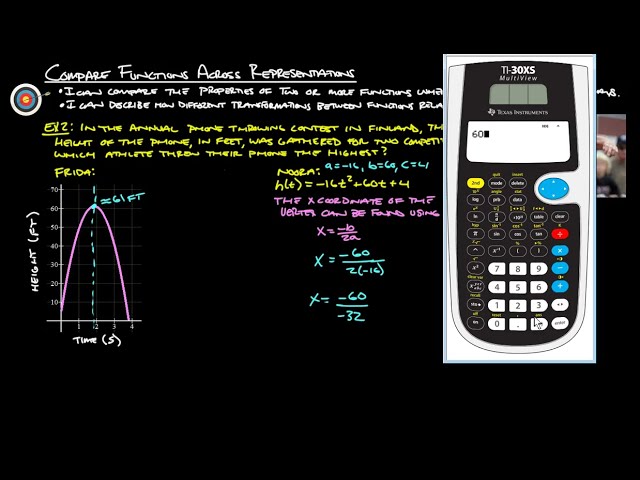 COMPARE FUNCTIONS ACROSS REPRESENTATIONS
• I CAN COMPARE THE PROPERTIES OF TWO OR MORE FUNCTIONS WHEN
• I CAN DESCRIBE HOW DIFFERENT TRANSFORMATIONS BETWEEN FUNCTIONS RELA
EX2: IN THE ANNUAL PHONE THROWING CONTEST IN FINLAND, TH
HEIGHT OF THE PHONE, IN FEET, WAS GATHERED FOR TWO COMPETI
WHICH ATHLETE THREW THEIR PHONE THE HIGHEST?
FRIDA:
≈61 FT
HEIGHT (FT)
70
60
50
40
30
20
10
1
2
3
4
TIME (S)
NOORA:
a=-16, b=60, c=4
h(t)=-16t²+60t+4
THE X COORDINATE OF THE
VERTEX CAN BE FOUND USING
X=-b/2a
X=-60/2(-16)
X=-60/-32
TI-30XS
MultiView
TEXAS INSTRUMENTS
60
2nd
mode
delete
log
prb
data
ln
table
clear
sin
cos
tan
7
8
9
4
5
6
1
2
3
0
enter